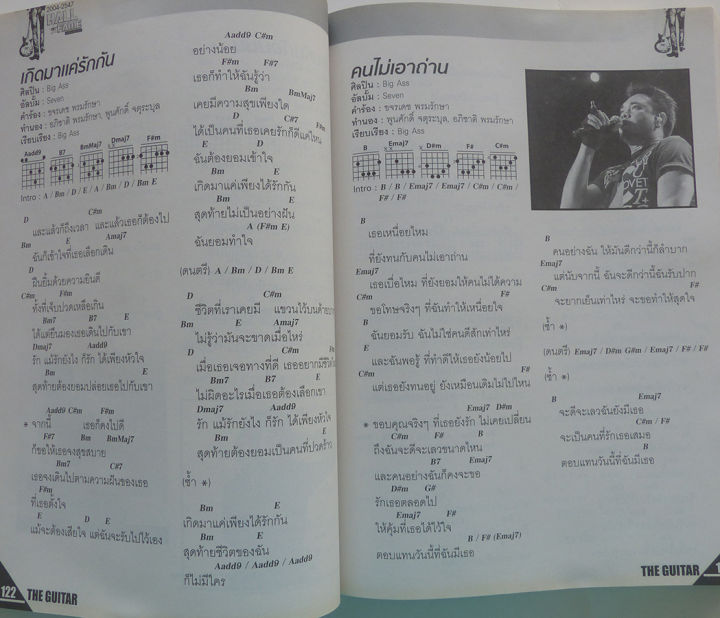 2004-2547
HALL
OF FAME
เกิดมาแค่รักกัน
ศิลปิน : Big Ass
อัลบั้ม : Seven
คำร้อง : ขจรเดช พรมรักษา
ทำนอง : อภิชาติ พรมรักษา, พูนศักดิ์ จตุระบุล
เรียบเรียง : Big Ass
Aadd9 B7 BmMaj7 Dmaj7 F#m
Intro : A / Bm / D / E / A / Bm / D / Bm E
D C#m
และแล้วก็ถึงเวลา และแล้วเธอก็ต้องไป
Bm E Amaj7
ฉันก็เข้าใจที่เธอเลือกเดิน
D
ฝืนยิ้มด้วยความยินดี
C#m F#m
ทั้งที่เจ็บปวดเหลือเกิน
Bm7 B7 E
ได้แต่ยืนมองเธอเดินไปกับเขา
Dmaj7 Aadd9
รัก แม้รักยังไง ก็รัก ได้เพียงหัวใจ
Bm E
สุดท้ายต้องยอมปล่อยเธอไปกับเขา
Aadd9 C#m F#m
* จากนี้ เธอก็คงไปดี
F#7 Bm BmMaj7
ก็ขอให้เธอจงสุขสบาย
Bm7 C#7
เธอจงเดินไปตามความฝันของเธอ
F#m
ที่เธอตั้งใจ
E D E
แม้จะต้องเสียใจ แต่ฉันจะรับไปไว้เอง
122 THE GUITAR
Aadd9 C#m
อย่างน้อย
F#m F#7
เธอก็ทำให้ฉันรู้ว่า
Bm BmMaj7
เคยมีความสุขเพียงใด
ได้เป็นคนที่เธอเคยรักก็ดีแค่ไหน
E D
ฉันต้องยอมเข้าใจ
Bm E
เกิดมาแค่เพียงได้รักกัน
Bm E
สุดท้ายไม่เป็นอย่างฝัน
A (F#m E)
ฉันยอมทำใจ
(ดนตรี) A / Bm / D / Bm E
D C#m
ชีวิตที่เราเคยมี
Bm E Amaj7
ไม่รู้ว่ามันจะขาดเมื่อไหร่
D C#m
เมื่อเธอเจอทางที่ดี
Bm7 B7 E
ไม่ผิดอะไรเมื่อเธอต้องเลือกเขา
Dmaj7 Aadd9
รัก แม้รักยังไง ก็รัก ได้เพียงหัวใจ
Bm E
สุดท้ายต้องยอมเป็นคนที่ปวดร้าว
(ซ้ำ *)
Bm E
เกิดมาแค่เพียงได้รักกัน
Bm E
สุดท้ายชีวิตของฉัน
Aadd9 / Aadd9 / Aadd9
ก็ไม่มีใคร
คนไม่เอาถ่าน
ศิลปิน : Big Ass
อัลบั้ม : Seven
คำร้อง : ขจรเดช พรมรักษา
ทำนอง : พูนศักดิ์ จตุระบุล, อภิชาติ พรมรักษา
เรียบเรียง : Big Ass
B Emaj7 D#m F# C#m
Intro : B / B / Emaj7 / Emaj7 / C#m / C#m /
F# / F#
B
เธอเหนื่อยไหม
ที่ยังทนกับคนไม่เอาถ่าน
Emaj7
เธอเบื่อไหม ที่ยังยอมให้คนไม่ได้ความ
C#m F#
ขอโทษจริงๆ ที่ฉันทำให้เหนื่อยใจ
B
ฉันยอมรับ ฉันไม่ใช่คนดีสักเท่าไหร่
E
และฉันพอรู้ ที่ทำดีให้เธอยังน้อยไป
C#m F#
แต่เธอยังทนอยู่ ยังเหมือนเดิมไม่ไปไหน
Emaj7 D#m
* ขอบคุณจริงๆ ที่เธอยังรัก ไม่เคยเปลี่ยน
C#m F# B
ถึงฉันจะดีจะเลวขนาดไหน
B7 Emaj7
และคนอย่างฉันก็คงจะขอ
D#m G#
รักเธอตลอดไป
Emaj7 F#
ให้คุ้มที่เธอได้ไว้ใจ
B / F# (Emaj7)
ตอบแทนวันนี้ที่ฉันมีเธอ
B
คนอย่างฉัน ให้มันดีกว่านี้ก็ลำบาก
Emaj7
แต่นับจากนี้ ฉันจะดีกว่านี้ฉันรับปาก
C#m F#
จะยากเย็นเท่าไหร่ จะขอทำให้สุดใจ
(ซ้ำ *)
(ดนตรี) Emaj7 / D#m G#m / Emaj7 / F# / F#
(ซ้ำ *)
B Emaj7
จะดีจะเลวฉันยังมีเธอ
C#m / F#
จะเป็นคนที่รักเธอเสมอ
B
ตอบแทนวันนี้ที่ฉันมีเธอ
THE GUITAR